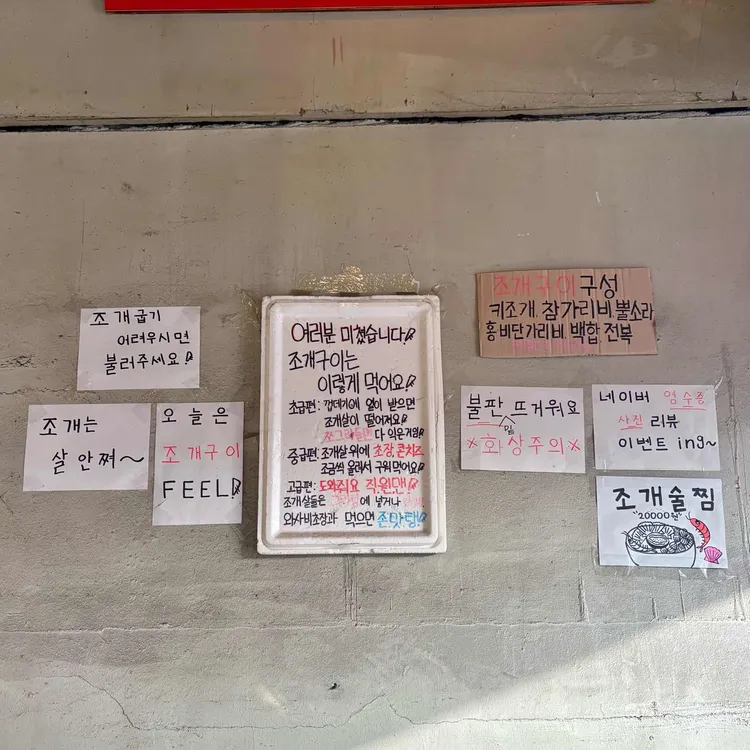 조개굽기
어려우시면
불러주세요!
조개는
살 안쪄~
오늘은
조개구이
FEEL!
여러분 미쳤습니다!
조개구이는
이렇게 먹어요!
초급편: 껍데기에 열이 받으면
조개살이 떨어져요!
쪼그라들면 다 익은거임!
중급편: 조개살 위에 초장, 콘치즈
조금씩 올려서 구워먹어요!
고급편: 도와줘요 직원맨!
조개살들은 에 넣거나
와사비초장과 먹으면 존맛탱!
조개구이 구성
키조개, 참가리비, 뿔소라
홍비단가리비, 백합, 전복
불판 뜨거워요
밑
*화상주의*
네이버 영수증
사진 리뷰
이벤트 ing~
조개술찜
"20000원"